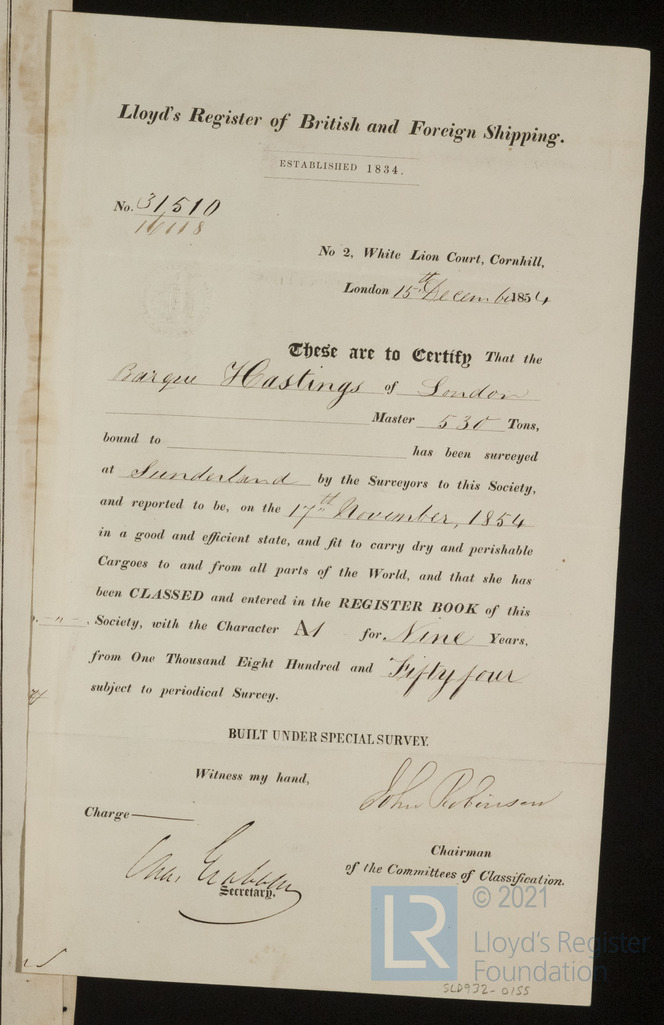 Lloyd's Register of British and Foreign Shipping.
ESTABLISHED 1834.
No. 31,510
16118
No 2, White Lion Court, Cornhill,
London 15th December 1854
These are to Certify That the
Barque Hastings of London
Master 530 Tons,
bound to has been surveyed
at Sunderland by the Surveyors to this Society,
and reported to be, on the 17th November, 1854
in a good and efficient state, and fit to carry dry and perishable
Cargoes to and from all parts of the World, and that she has
been CLASSED and entered in the REGISTER BOOK of this
Society, with the Character A1 for Nine Years,
from One Thousand Eight Hundred and Fifty four
subject to periodical Survey.
BUILT UNDER SPECIAL SURVEY.
Witness my hand,
John Robinson
Charge
Chairman
of the Committees of Classification.
Secretary.
LR © 2021
Lloyd's Register
Foundation
SLD932-0155